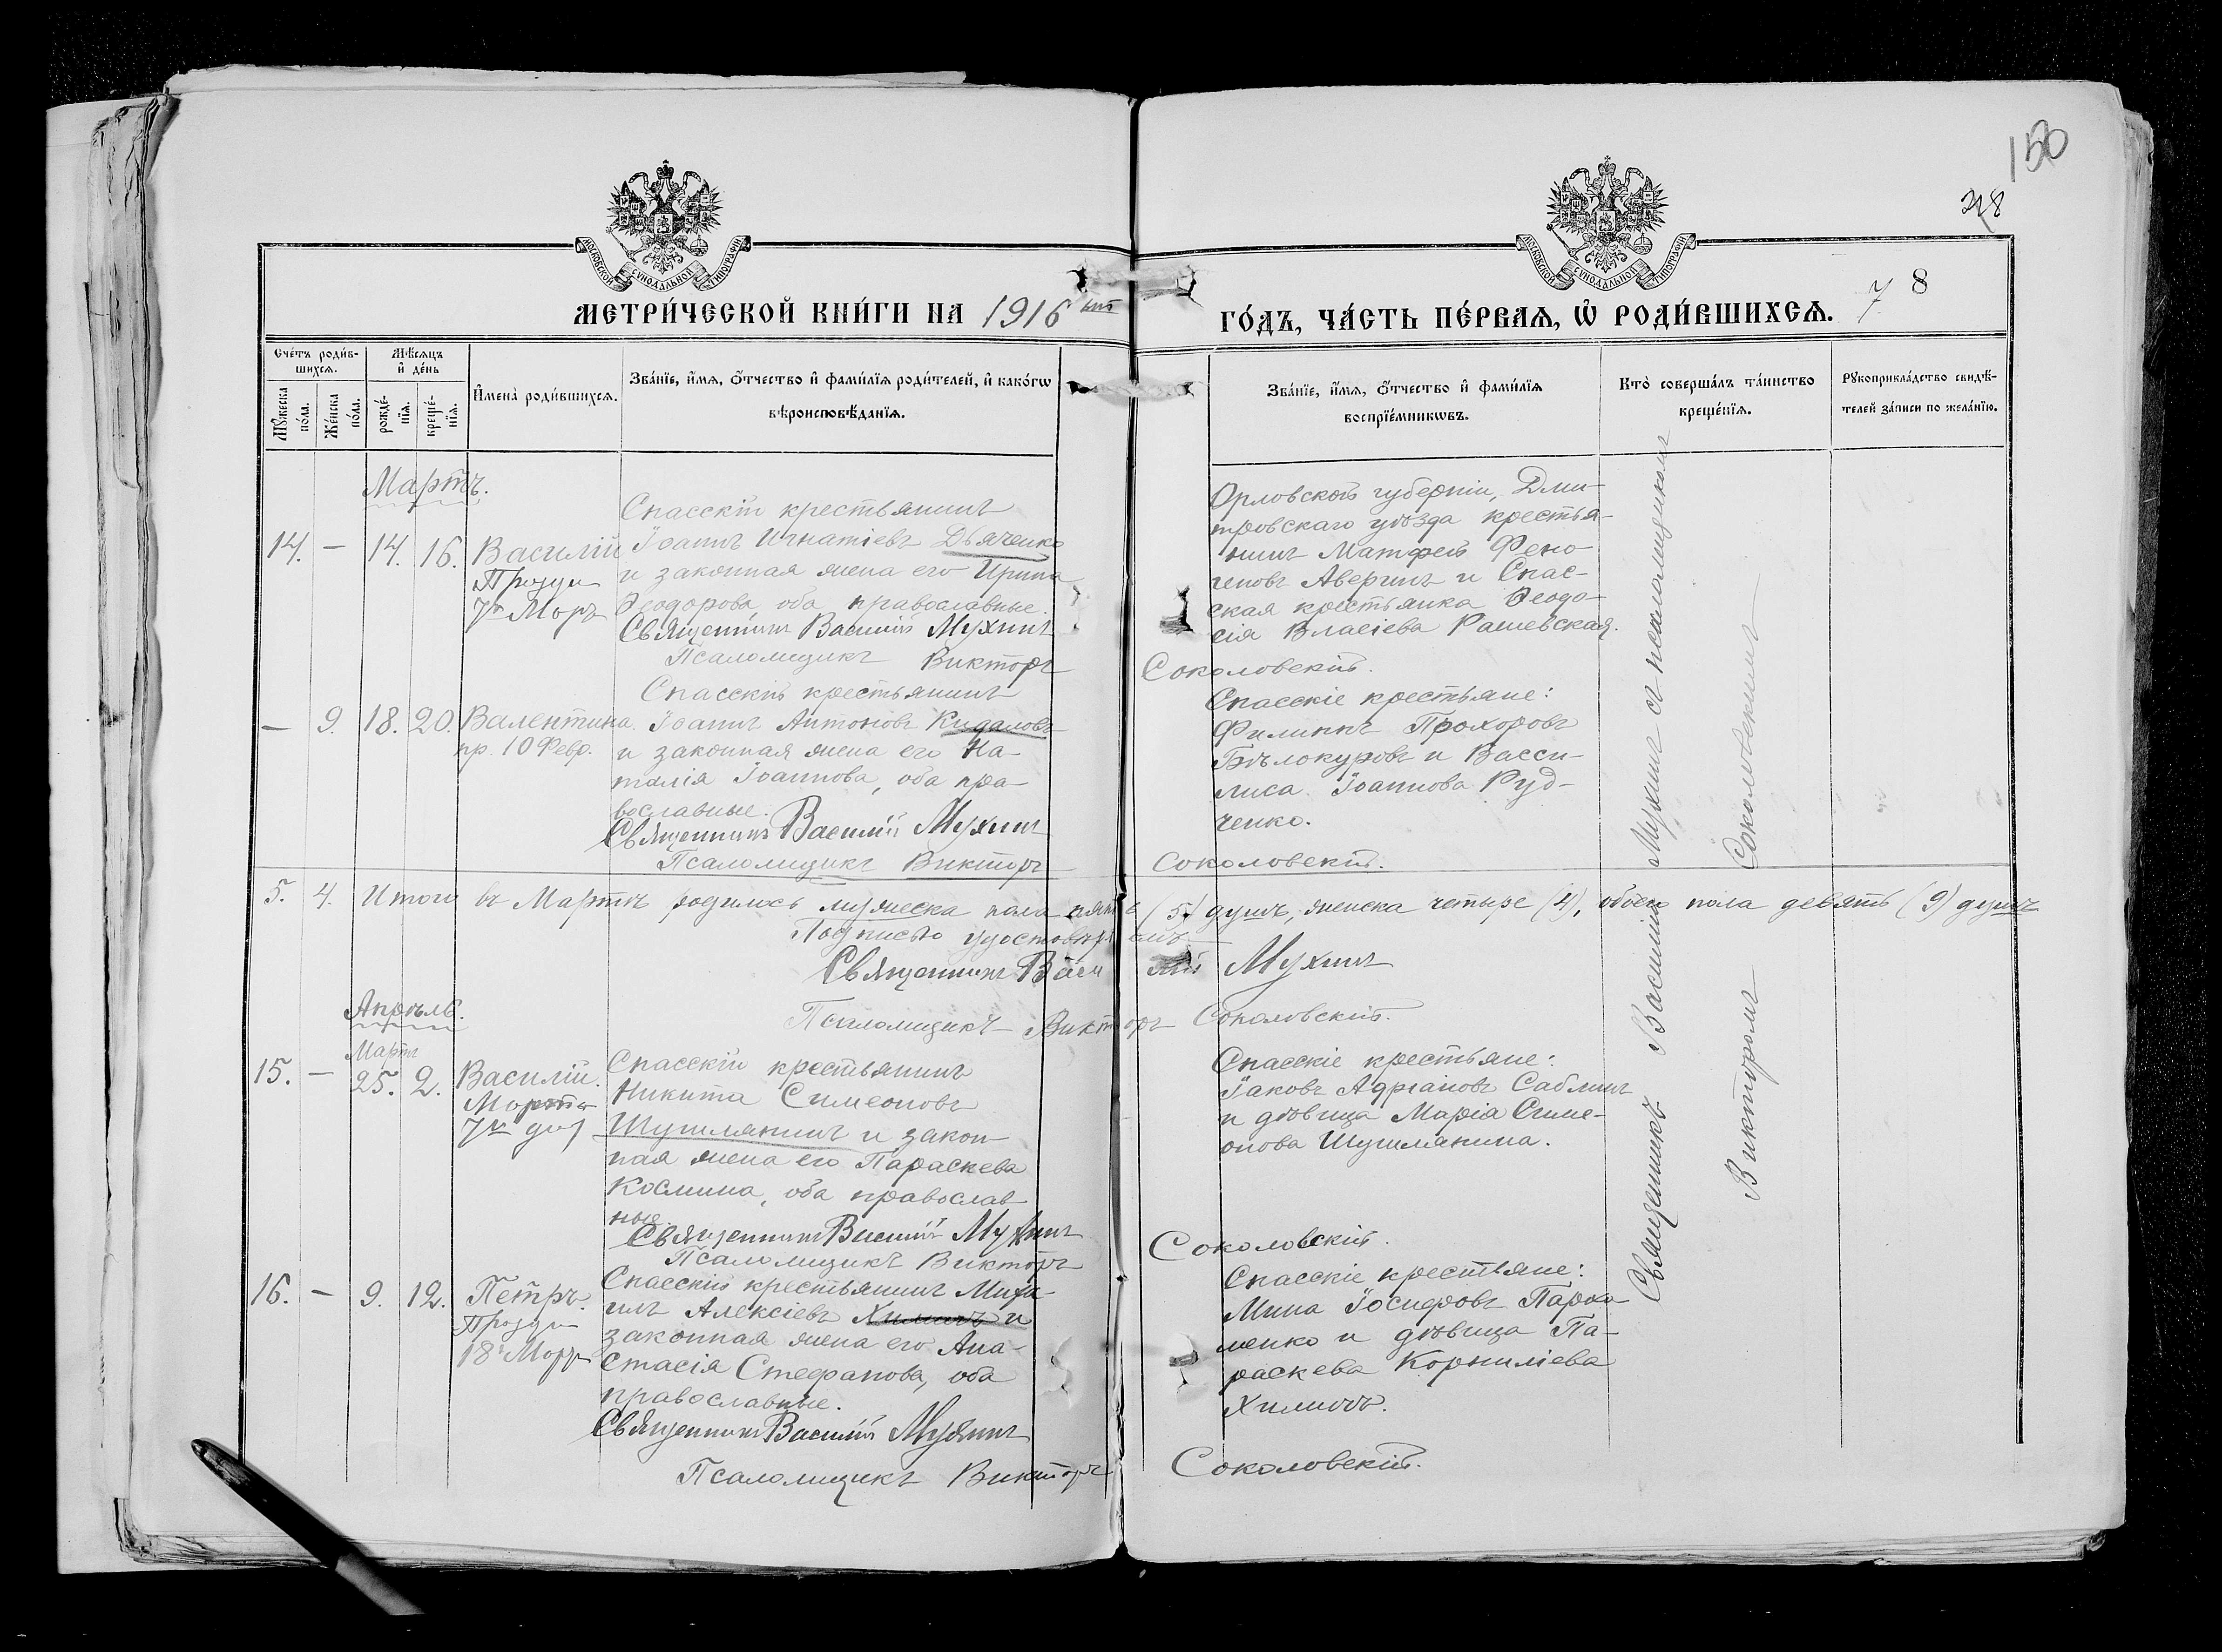 150
318
МОСКОВСКОЙ СѴНОДАЛЬНОЙ ТИПОГРАФІИ
МОСКОВСКОЙ СѴНОДАЛЬНОЙ ТИПОГРАФІИ
МЕТРИ́ЧЕСКОЙ КНИ́ГИ НА 1916
ГО́ДЪ, ЧА́СТЬ ПЕ́РВАЯ, Ѡ҆ РОДИ́ВШИХСѦ. 7 8
Сче́тъ роди́в-
шихсѧ.
Мꙋжеска по́ла.
Же́нска по́ла.
Мѣ́сѧцъ и҆ де́нь
рожде́-
нїѧ.
креще́-
нїѧ.
И҆мена̀ роди́вшихсѧ.
Зва́нїе, и҆́мѧ, ѻ҆́тчество и҆ фами́лїѧ роди́телей, и҆ како́гѡ
вѣроисповѣ́данїѧ.
Зва́нїе, и҆́мѧ, ѻ҆́тчество и҆ фами́лїѧ
воспрїе́мникѡвъ.
Кто̀ соверша́лъ та́инство
креще́нїѧ.
Рꙋкоприкла́дство свидѣ́-
телей за́писи по жела́нїю.
Мартъ.
14. — 14. 16. Василій
7го Мар
Спасскій крестьянинъ
Іоаннъ Игнатіевъ Дьяченко
и законная жена его Ирина
Ѳеодорова, оба православные.
Священникъ Василій Мухинъ
Псаломщикъ Викторъ Соколовскій.
Орловской губерніи, Дми-
тровскаго уѣзда крестья-
нинъ Матфей
Аверинъ и Спас-
ская крестьянка Ѳеодо-
сія Власіева Рашевская.
— 9. 18. 20. Валентина.
пр. 10 Февр.
Спасскій крестьянинъ
Іоаннъ Антоновъ Кидаловъ
и законная жена его На-
талія Іоаннова, оба пра-
вославные.
Священникъ Василій Мухинъ
Псаломщикъ Викторъ Соколовскій.
Спасскіе крестьяне:
Филиппъ Прохоровъ
Бѣлокуровъ и Васси-
лиса Іоаннова Руд-
ченко.
5. 4. Итого въ Мартѣ родилось мужеска пола пять (5) душъ, женска четыре (4), обоего пола девять (9) душъ
Подписью удостовѣряемъ
Священникъ Василій Мухинъ
Псаломщикъ Викторъ Соколовскій.
Апрѣль.
Мартъ
15. — 25. 2. Василій.
Марта
7го дня
Спасскій крестьянинъ
Никита Симеоновъ
Шушлянинъ и закон-
ная жена его Параскева
Космина, оба православ-
ные.
Священникъ Василій Мухинъ
Псаломщикъ Викторъ Соколовскій.
Спасскіе крестьяне:
Іаковъ Адріановъ Саблинъ
и дѣвица Марія Симе-
онова Шушлянина.
16. — 9. 12. Петръ.
18 Мар
Спасскій крестьянинъ Миха-
илъ Алексіевъ Химичъ и
законная жена его Ана-
стасія Стефанова, оба
православные.
Священникъ Василій Мухинъ
Псаломщикъ Викторъ Соколовскій.
Спасскіе крестьяне:
Мина Іосифовъ Пархо-
менко и дѣвица Па-
раскева Корниліева
Химичъ.
Священникъ Василій Мухинъ съ псаломщикомъ
Викторомъ Соколовскимъ